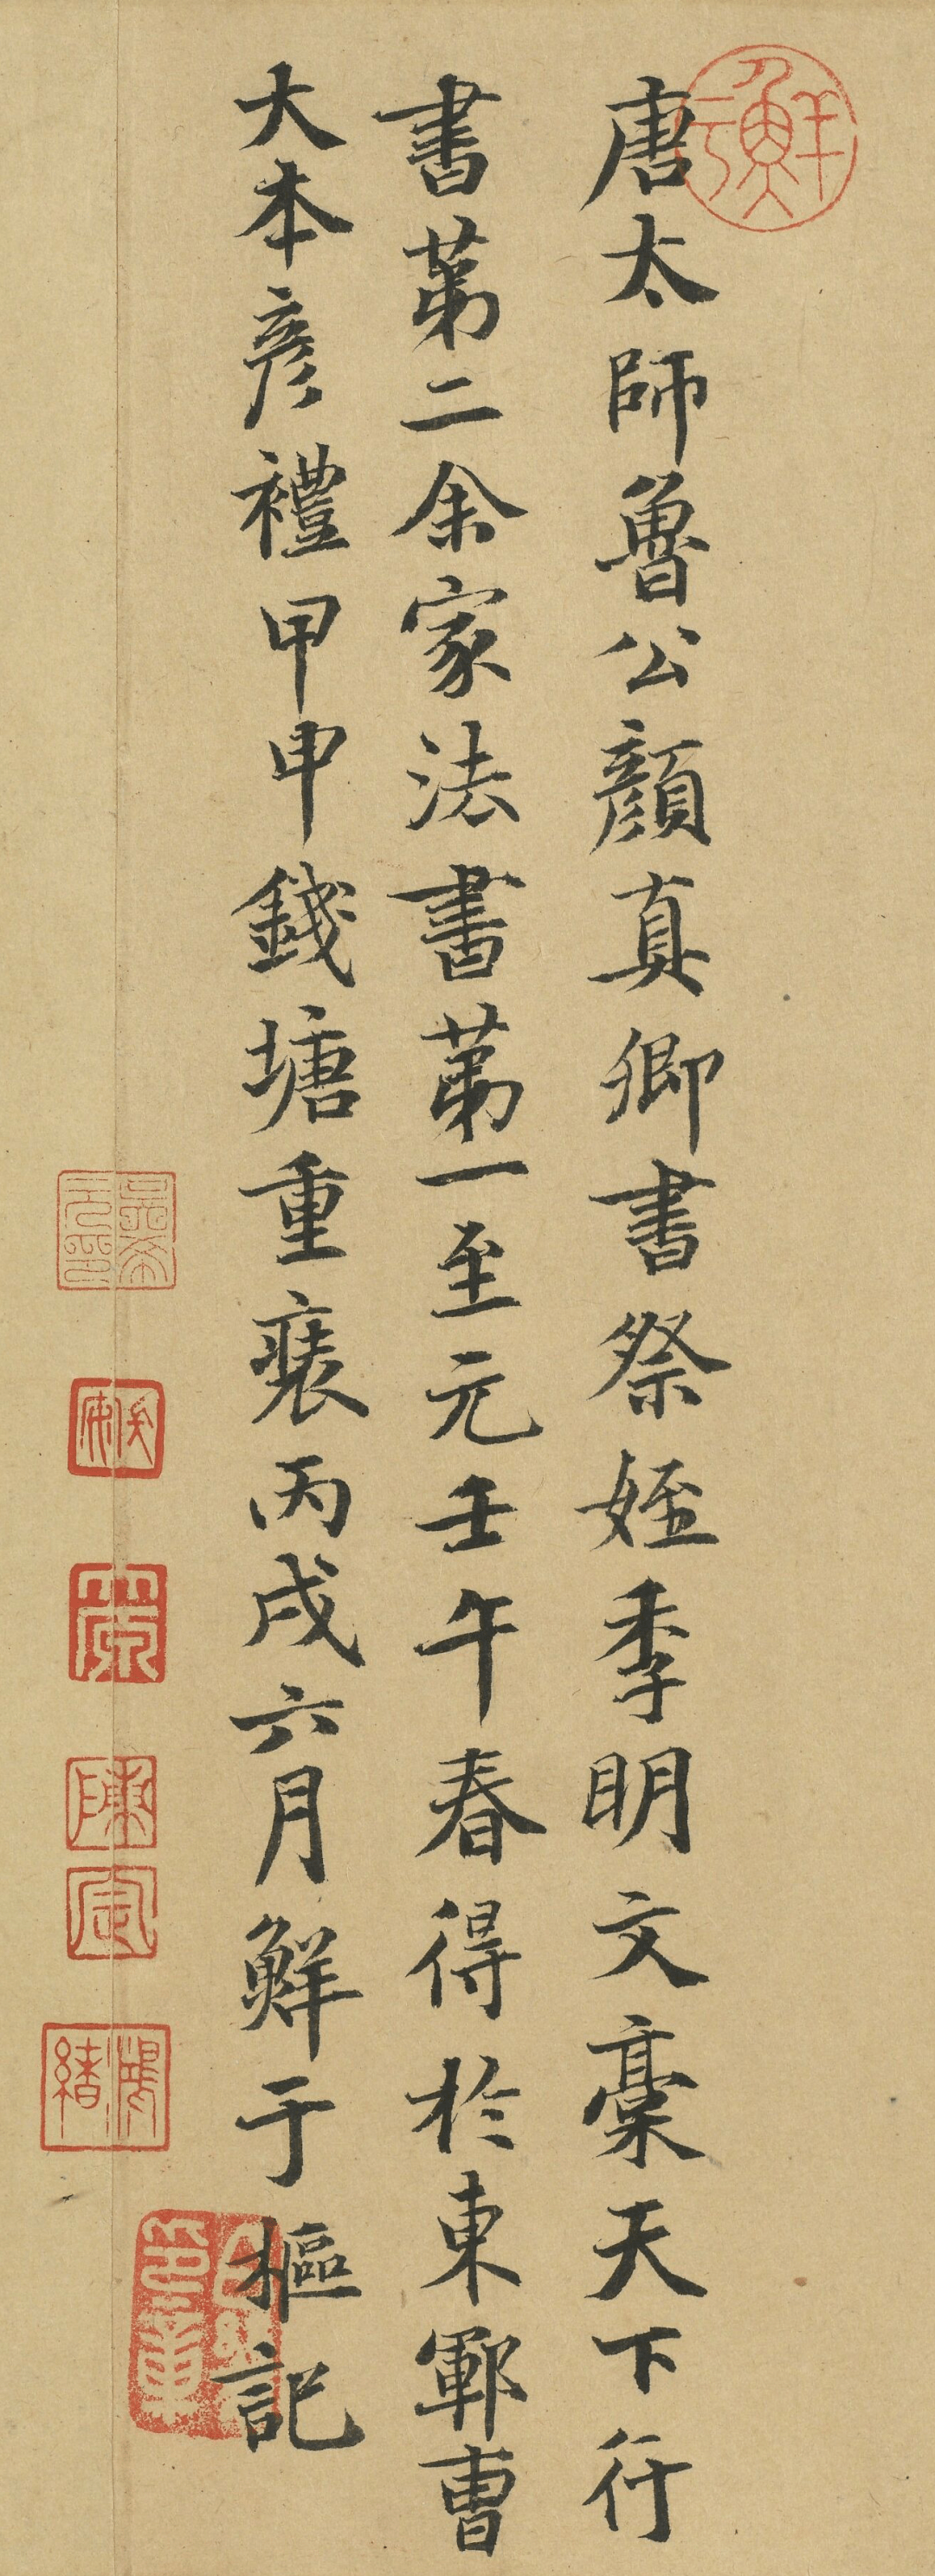 唐太師魯公顏真卿書祭姪季明文藁天下行
書苐二余家法書苐一至元壬午春得於東鄆曹
大本彦禮甲申錢塘重裝丙戌六月鮮于樞記